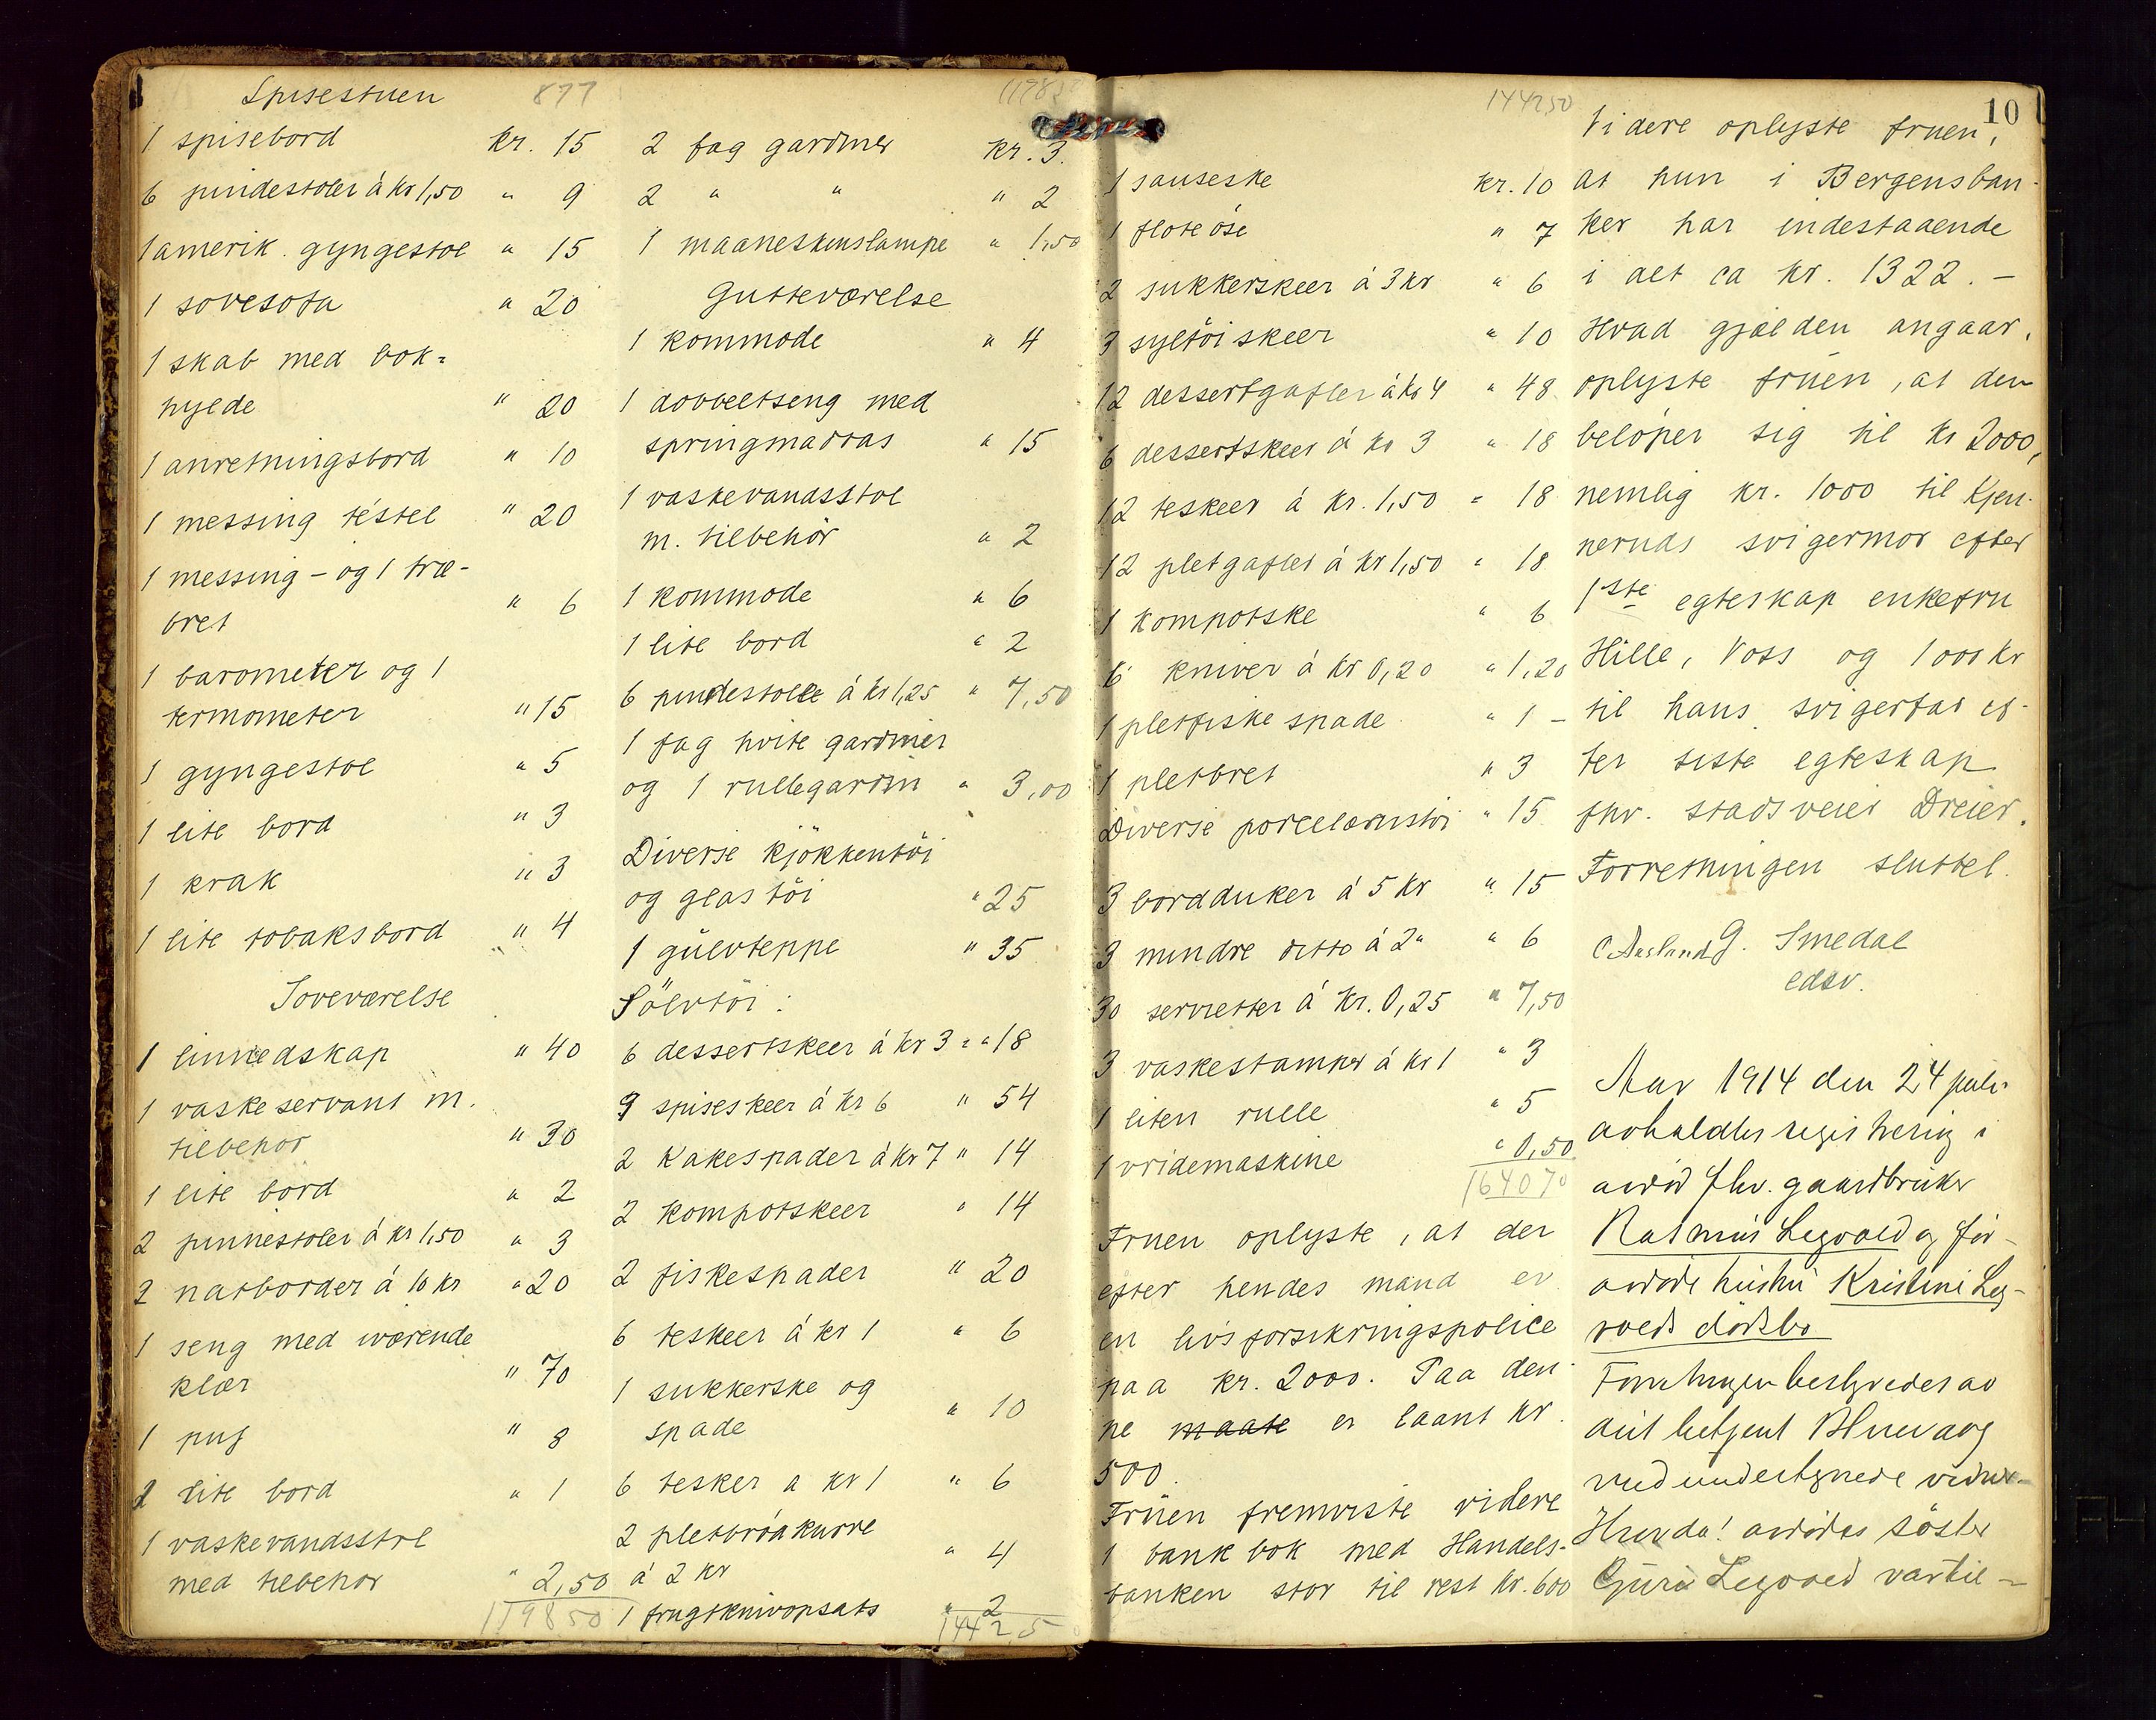 Spisestuen 877
1 spisebord kr. 15
6 pindestoler á kr 1,50 " 9
1 amerik. gyngestol " 15
1 sovesofa " 20
1 skab med bok=
hylde " 20
1 anretningsbord " 10
1 messing téstel " 20
1 messing - og 1 træ-
bret " 6
1 barometer og 1
termometer " 15
1 gyngestol " 5
1 lite bord " 3
1 krak " 3
1 lite tobaksbord " 4
Soveværelse
1 linnedskap " 40
1 vaskeservant m.
tilbehör " 30
1 lite bord " 2
2 pinnestoler á kr 1,50 " 3
2 natborder á 10 kr " 20
1 seng med iværende
klær " 70
1 puf " 8
2 lite bord " 1
1 vaskevandsstol
med tilbehör " 2,50
119850
1198
2 fag gardiner kr. 3.
2 " " " 2
1 maaneskinslampe " 1,50
Gutteværelse
1 kommode " 4
1 dobbeltseng med
springmadras " 15
1 vaskevandsstol
m. tilbehör " 2
1 kommode " 6
1 lite bord " 2
6 pindestole á kr 1,25 " 7,50
1 fag hvite gardiner
og 1 rullegardin " 3,00
Diverse kjökkentöi
og glastöi " 25
1 gulvteppe " 35
Sölvtöi:
6 dessertskeer á kr 3 = " 18
9 spiseskeer á kr 6 " 54
2 Kakespader á kr 7 " 14
2 kompotskeer " 14
2 fiskespader " 20
6 teskeer á kr 1 " 6
1 sukkerske og
spade " 10
6 tesker a kr 1 " 6
2 pletbrödkurve
á 2 kr " 4
1 frugtknivopsats " 2
14425
144250
1 sauseske kr. 10
1 flöteöse " 7
2 sukkerskeer á 3 kr " 6
3 syltöiskeer " 10
12 dessertgafler á kr 4 " 48
6 dessertskeer á kr 3 " 18
12 teskeer á kr. 1,50 = 18
12 pletgafler á kr 1,50 " 18
1 kompotske " 6
6 kniver á kr 0,20 " 1,20
1 pletfiskespade " 1 -
1 pletbret " 3
Diverse porcelænstöi " 15
3 bordduker á 5 kr " 15
3 mindre ditto á 2 " " 6
30 servietter á kr. 0,25 " 7,50
3 vaskestamper á kr 1 " 3
1 liten rulle " 5
1 vridemaskine " 0,50
164070
Fruen oplyste, at der
efter hendes mand er
en livsforsikringspolice
paa kr. 2000. Paa den-
ne maate er laant kr.
500.
Fruen fremviste videre
1 bankbok med Handels-
banken stor til rest kr. 600
10
Videre oplyste fruen,
at hun i Bergensban-
ker har indestaaende
i alt ca kr. 1322. -
Hvad gjælden angaar,
oplyste fruen, at den
belöper sig til kr 2000,
nemlig kr. 1000 til Kjen-
neruds svigermor efter
1ste egteskap enkefru
Hille, Voss og 1000 kr
til hans svigerfar ef-
ter siste egteskap
fhv. stadsveier Dreier.
Forretningen sluttet.
C Aasland G. Smedal
edsv.
Aar 1914 den 24 juli
avholdtes registrering i
avdöd fhv. gaardbruker
Rasmus Legvold og för-
avdöde hustru Kristine Leg-
volds dödsbo
Forretningen bestyredes av
ved undertegnede vidner
Hvorda! avdödes söster
Guri Legvold var til-